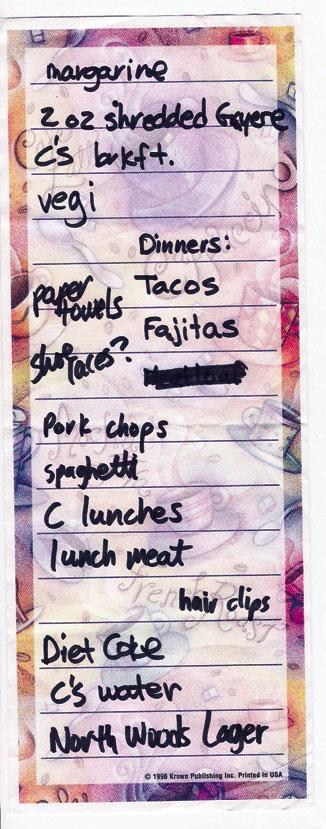 margarine
2 oz shredded Gruyere
C's brkft.
vegi
Dinners:
paper towels
Tacos
Fajitas
shoe laces?
Pork chops
spaghetti
C lunches
lunch meat
hair clips
Diet Coke
C's water
North Woods Lager
© 1996 Krown Publishing Inc. Printed in USA